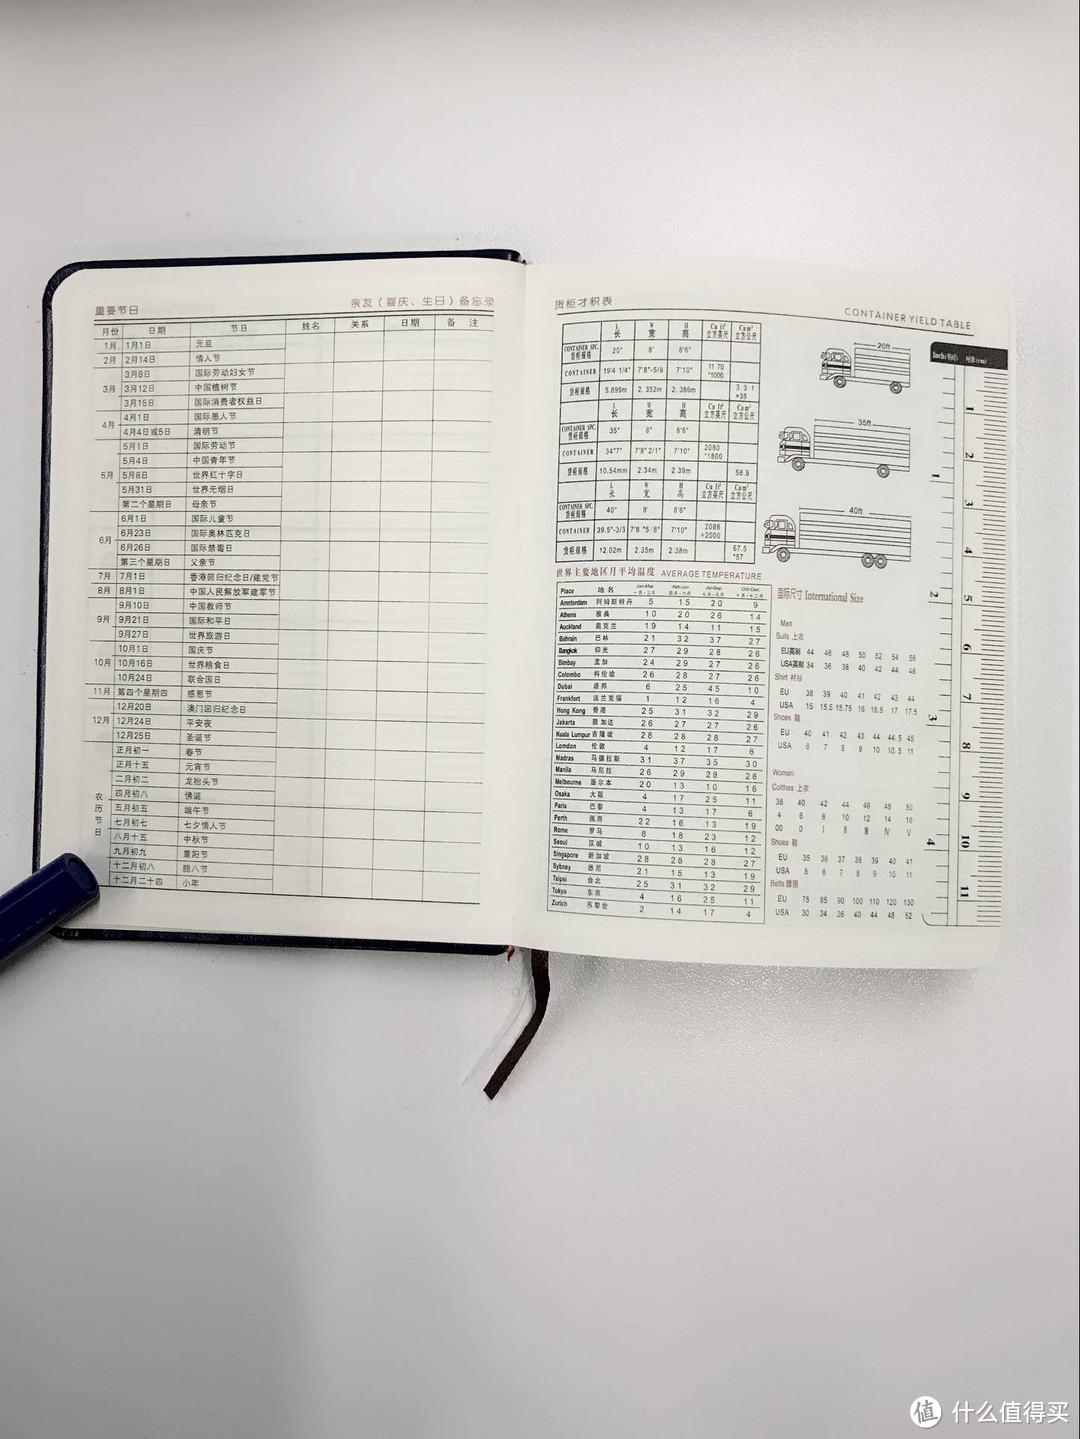 重要节日
亲友（喜庆、生日）备忘录
月份 日期 节日 姓名 关系 日期 备 注
1月 1月1日 元旦
2月 2月14日 情人节
3月 3月8日 国际劳动妇女节
3月12日 中国植树节
3月15日 国际消费者权益日
4月 4月1日 国际愚人节
4月4日或5日 清明节
5月 5月1日 国际劳动节
5月4日 中国青年节
5月8日 世界红十字日
5月31日 世界无烟日
第二个星期日 母亲节
6月 6月1日 国际儿童节
6月23日 国际奥林匹克日
6月26日 国际禁毒日
第三个星期日 父亲节
7月 7月1日 香港回归纪念日/建党节
8月 8月1日 中国人民解放军建军节
9月 9月10日 中国教师节
9月21日 国际和平日
9月27日 世界旅游日
10月 10月1日 国庆节
10月16日 世界粮食日
10月24日 联合国日
11月 第四个星期四 感恩节
12月 12月20日 澳门回归纪念日
12月24日 平安夜
12月25日 圣诞节
农历节日 正月初一 春节
正月十五 元宵节
二月初二 龙抬头节
四月初八 佛诞
五月初五 端午节
七月初七 七夕情人节
八月十五 中秋节
九月初九 重阳节
十二月初八 腊八节
十二月二十四 小年
货柜才积表
CONTAINER YIELD TABLE
L 长 W 宽 H 高 Cu ft³ 立方英尺 Cu m³ 立方公尺
CONTAINER SPC. 货柜规格 20" 8' 8'6"
CONTAINER 19'4 1/4" 7'8"-5/8 7'10" 11 70 *1000
货柜规格 5.899m 2.352m 2.386m 3 3.1 *38
L 长 W 宽 H 高 Cu ft³ 立方英尺 Cu m³ 立方公尺
CONTAINER SPC. 货柜规格 35" 8" 8'6"
CONTAINER 34"7" 7'8"2/1" 7'10" 2080 *1800
货柜规格 10.54mm 2.34m 2.39m 58.9
L 长 W 宽 H 高 Cu ft³ 立方英尺 Cu m³ 立方公尺
CONTAINER SPC. 货柜规格 40" 8' 8'6"
CONTAINER 39.5"-3/3 7'8 "5/8" 7'10" 2088 *2000
货柜规格 12.02m 2.35m 2.38m 67.5 *57
20ft
35ft
40ft
世界主要地区月平均温度 AVERAGE TEMPERATURE
Place 地 名 Jan-Mar 一月-三月 Apr-Jun 四月-六月 Jul-Sep 七月-九月 Oct-Dec 十月-十二月
Amsterdam 阿姆斯特丹 5 15 20 9
Athens 雅典 10 20 26 14
Auckland 奥克兰 19 14 11 15
Bahrain 巴林 21 32 37 27
Bangkok 仰光 27 29 28 26
Bimbay 孟加 24 29 27 26
Colombo 科伦坡 26 28 27 26
Dubai 迪邦 6 25 45 10
Frankfort 法兰克福 1 12 16 4
Hong Kong 香港 25 31 32 29
Jakarta 雅加达 26 27 27 26
Kuala Lumpur 吉隆坡 28 28 28 27
Lomdon 伦敦 4 12 17 6
Madras 马德拉斯 31 37 35 30
Manila 马尼拉 26 29 28 26
Melbourne 墨尔本 20 13 10 16
Osaka 大阪 4 17 25 11
Paris 巴黎 4 13 17 6
Perth 佩恩 22 16 13 19
Rome 罗马 8 18 23 12
Seoul 汉城 10 13 16 12
Singspore 新加坡 28 28 28 27
Sybney 悉尼 21 15 13 19
Taipei 台北 25 31 32 29
Tokyo 东京 4 16 25 11
Zurich 苏黎世 2 14 17 4
国际尺寸 International Size
Men
Suits 上衣
EU英制 44 46 48 50 52 54 56
USA英制 34 36 38 40 42 44 46
Shirt 衬衫
EU 38 39 40 41 42 43 44
USA 15 15.5 15.75 16 16.5 17 17.5
Shoes 鞋
EU 40 41 42 43 44 44.5 45
USA 6 7 8 9 10 10.5 11
Women
Cotthes 上衣
38 40 42 44 46 48 50
4 6 8 10 12 14 16
00 0 I II III IV V
Shoes 鞋
EU 35 36 37 38 39 40 41
USA 5 6 7 8 9 10 11
Belts 腰围
EU 75 85 90 100 110 120 130
USA 30 34 36 40 44 48 52
1 2 3 4
1 2 3 4 5 6 7 8 9 10 11
值 什么值得买